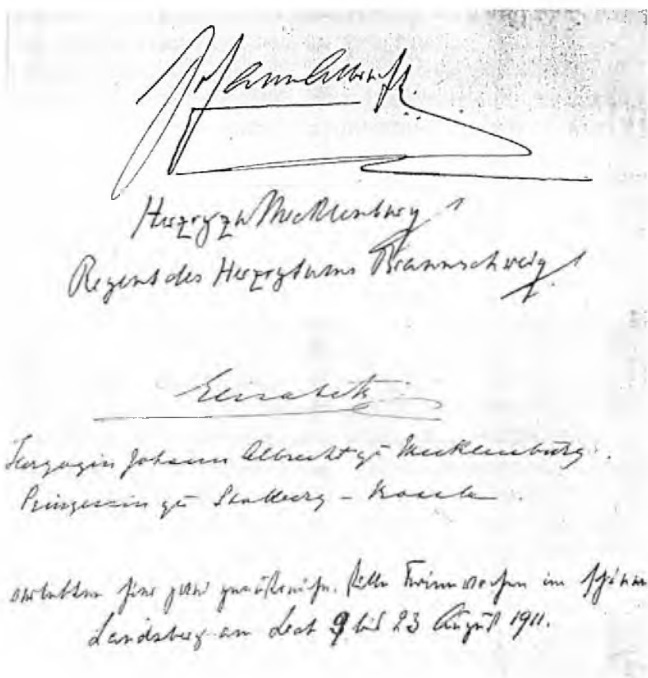 Johann Albrecht
Herzog zu Mecklenburg
Regent des Herzogtums Braunschweig
Elisabeth
Herzogin Johann Albrecht zu Mecklenburg.
Prinzessin zu Stolberg - Rossla.
verlebten hier zwei genußreiche, stille Ferienwochen im schönen
Landsberg am Lech 9 bis 23 August 1911.